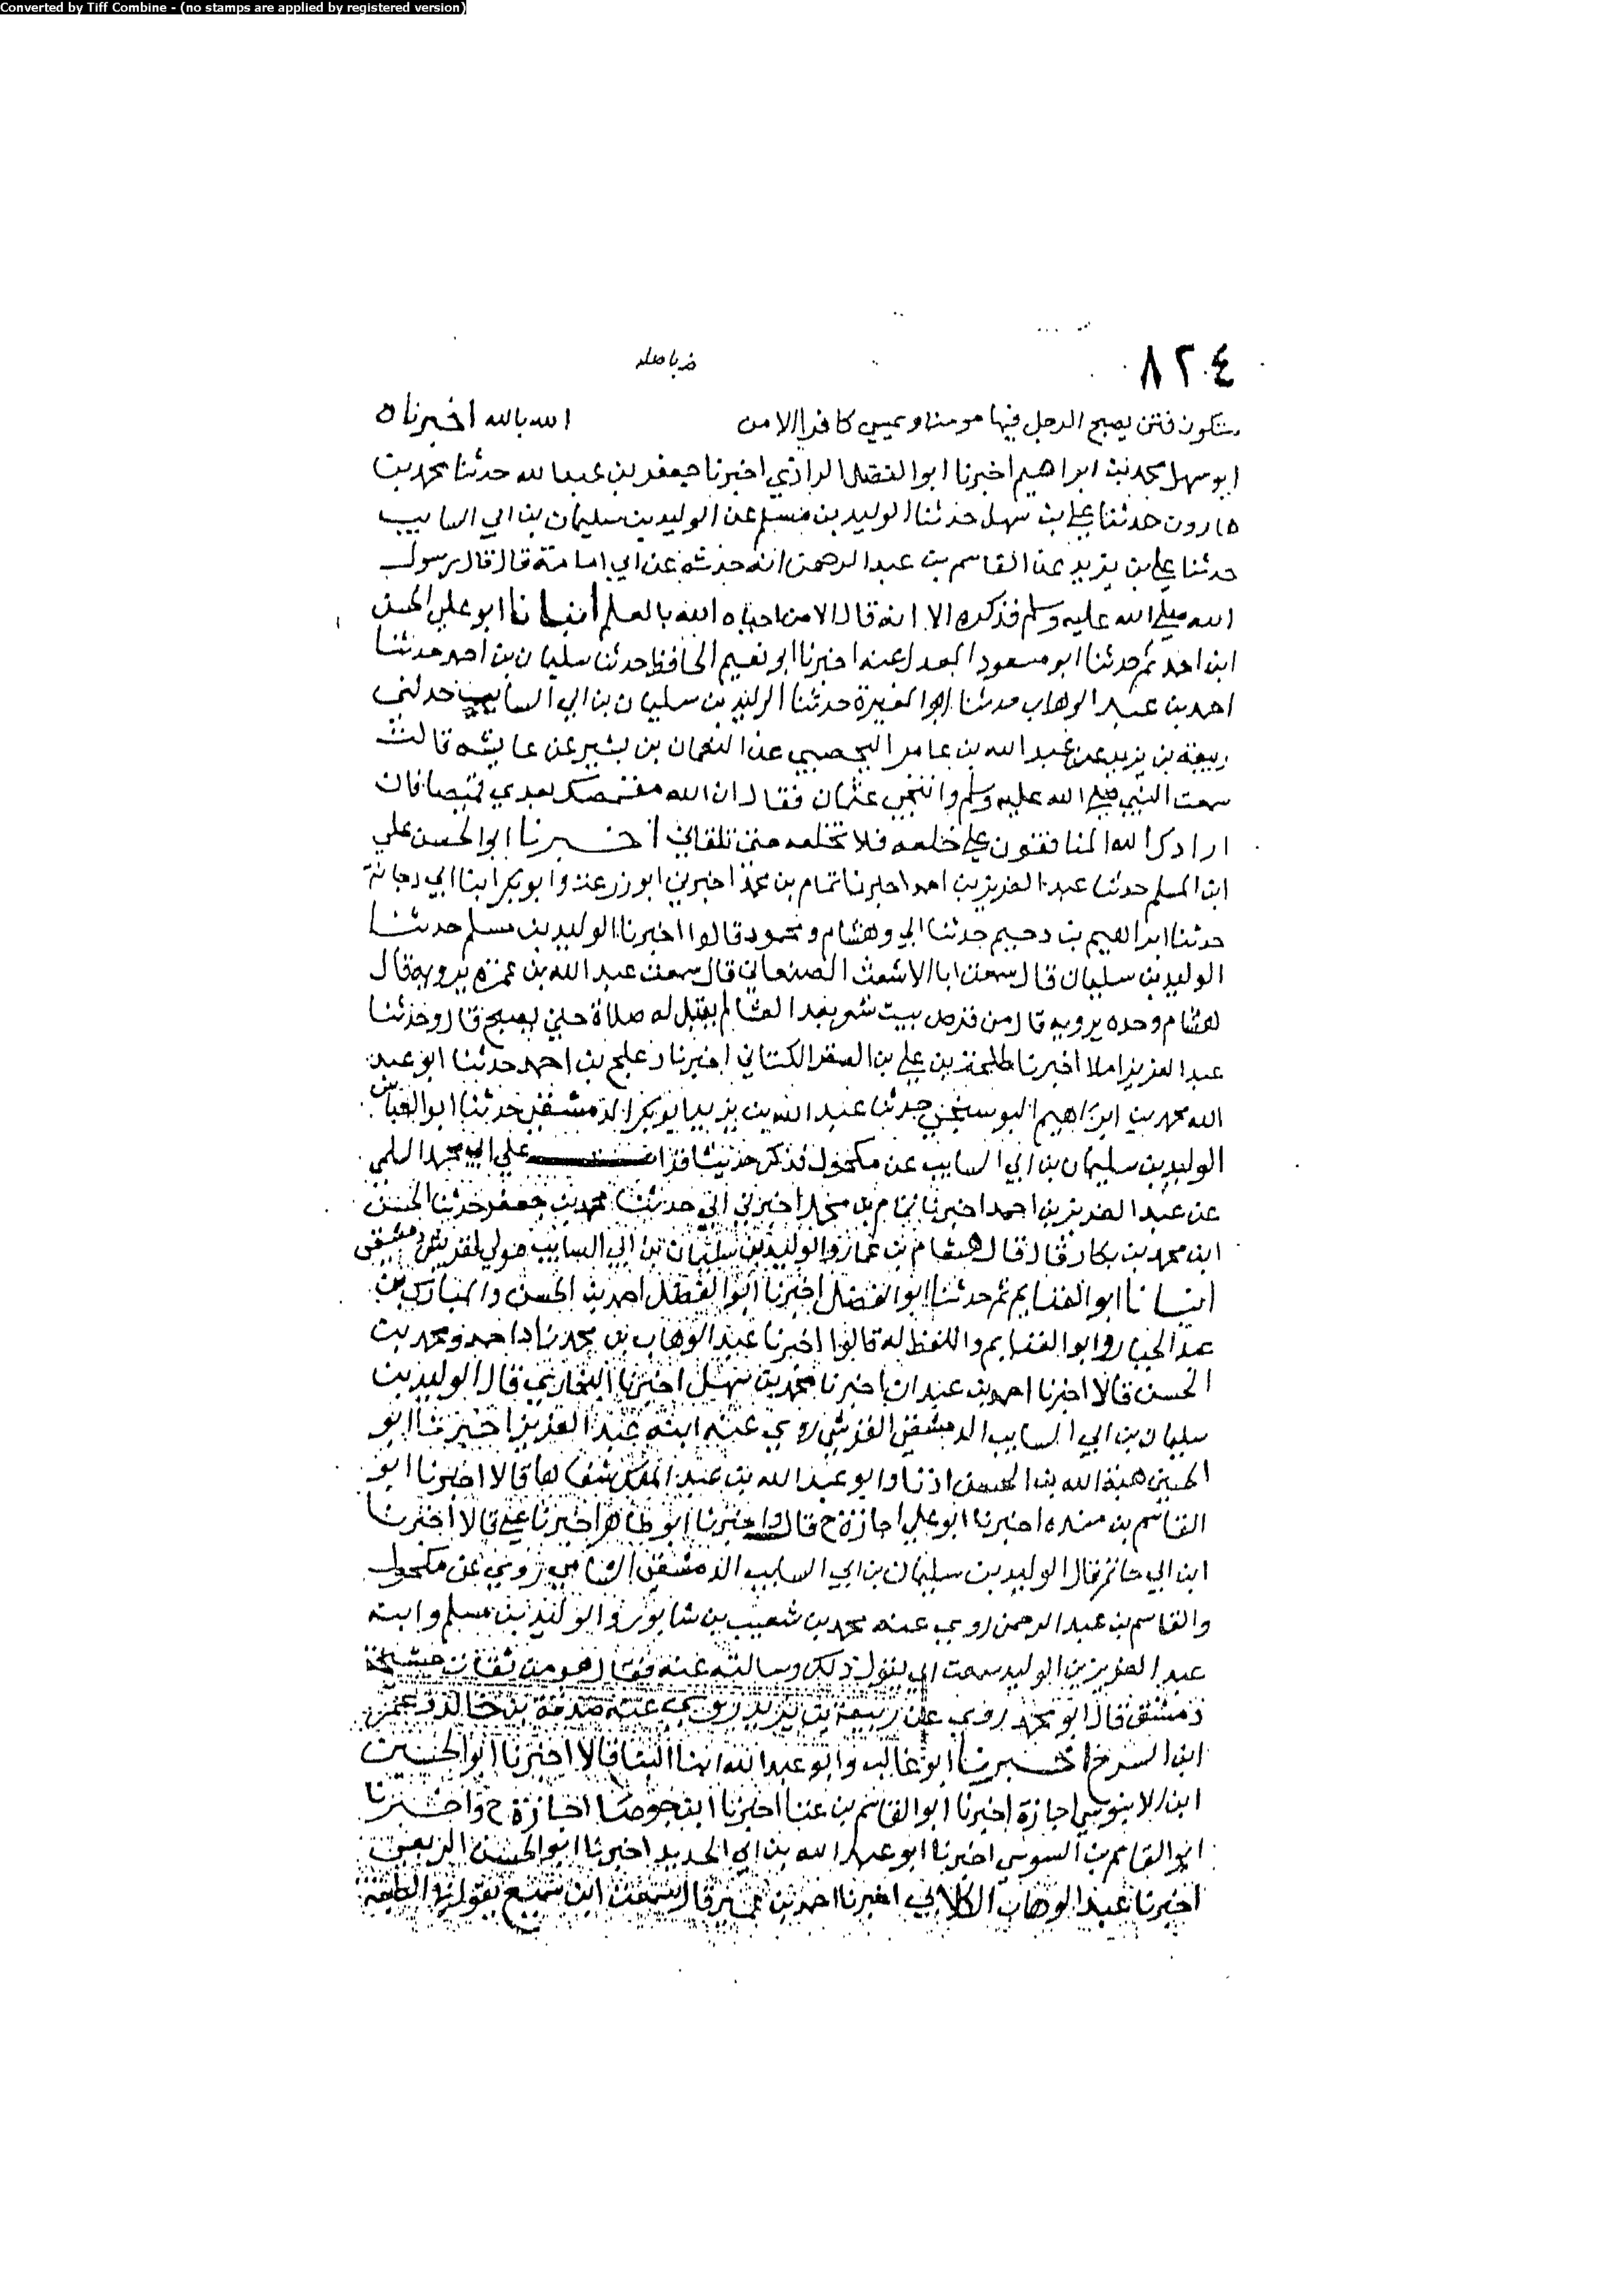 Converted by Tiff Combine - (no stamps are applied by registered version)
٨٢٤
ستكون فتن يصبح الرجل فيها مومنا ويمسي كافرا الا من الله بالله اخبرناه
ابو سهل محمد بن ابراهيم اخبرنا ابو الفضل الرازي اخبرنا جعفر بن عبد الله حدثنا محمد بن
هارون حدثنا علي بن سهل حدثنا الوليد بن مسلم عن الوليد بن سليمان بن ابي السايب
حدثنا علي بن يزيد عن القاسم بن عبد الرحمن انه حدثه عن ابي امامة قال قال رسول
الله صلى الله عليه وسلم فذكره الا انه قال الا من احياه الله بالعلم انبانا ابو علي الحسن
ابن احمد ثم حدثنا ابو مسعود المعدل عنه اخبرنا ابو نعيم الحافظ حدثنا سليمان بن احمد حدثنا
احمد بن عبد الوهاب حدثنا ابو المغيرة حدثنا الوليد بن سليمان بن ابي السايب حدثني
ربيعة بن يزيد عن عبد الله بن عامر اليحصبي عن النعمان بن بشير عن عايشه قالت
سمعت النبي صلى الله عليه وسلم وانتجى عثمان فقال ان الله مقمصك بعدي قميصا فان
ارادك الله المنافقون على خلعه فلا تخلعه حتى تلقاني اخبرنا ابو الحسن علي
ابن المسلم حدثنا عبد العزيز بن احمد اخبرنا تمام بن محمد اخبرني ابو زرعة وابو بكر ابنا ابي دجانة
حدثنا ابراهيم بن دحيم حدثنا ابي وهشام ومحمود قالوا اخبرنا الوليد بن مسلم حدثنا
الوليد بن سليمان قال سمعت ابا الاشعث الصنعاني قال سمعت عبد الله بن عمرو يرويه قال
هشام وحده يرويه قال من قرض بيت شعر بعد العشا لم يقبل له صلاة حتى يصبح قال وحدثنا
عبد العزيز املا اخبرنا طلحة بن علي بن الصقر الكتاني اخبرنا دعلج بن احمد حدثنا ابو عبد
الله محمد بن ابراهيم البوسنجي حدثنا عبد الله بن يزيد ابو بكر الدمشقي حدثنا ابو العباس
الوليد بن سليمان بن ابي السايب عن مكحول فذكر حديثا قرات علي ابي محمد السلمي
عن عبد العزيز بن احمد اخبرنا تمام بن محمد اخبرني ابي حدثنا محمد بن جعفر حدثنا الحسن
ابن محمد بن بكار قال قال هشام بن عمار والوليد بن سليمان بن ابي السايب مولي لقريش دمشقي
انبانا ابو الغنايم ثم حدثنا ابو الفضل اخبرنا ابو الفضل احمد بن الحسن والمبارك بن
عبد الجبار وابو الغنايم واللفظ له قالوا اخبرنا عبد الوهاب بن محمد زاد احمد ومحمد بن
الحسن قالا اخبرنا احمد بن عبدان اخبرنا محمد بن سهل اخبرنا البخاري قال الوليد بن
سليمان بن ابي السايب الدمشقي القرشي روي عنه ابنه عبد العزيز اخبرنا ابو
الحسين هبة الله بن الحسن اذنا وابو عبد الله بن عبد الملك شفاها قالا اخبرنا ابو
القاسم بن منده اخبرنا ابو علي اجازة ح قال واخبرنا ابو طاهر اخبرنا علي قالا اخبرنا
ابن ابي حاتم قال الوليد بن سليمان بن ابي السايب الدمشقي الشامي روي عن مكحول
والقاسم بن عبد الرحمن روي عنه محمد بن شعيب بن شابور والوليد بن مسلم وابنه
عبد العزيز بن الوليد سمعت ابي يقول ذلك وسالته عنه فقال هو من ثقات مشيخة
دمشق قال ابو محمد روي عن ربيعة بن يزيد روي عنه صدقة بن خالد وعمرو
ابن السرح اخبرنا ابو غالب وابو عبد الله ابنا البنا قالا اخبرنا ابو الحسين
ابن الابنوسي اجازة اخبرنا ابو القاسم بن عتاب اخبرنا ابن جوصا اجازة ح واخبرنا
ابو القاسم بن السوسي اخبرنا ابو عبد الله بن ابي الحديد اخبرنا ابو الحسن الربعي
اخبرنا عبد الوهاب الكلابي اخبرنا احمد بن عمير قال سمعت ابن سميع يقول في الطبقة